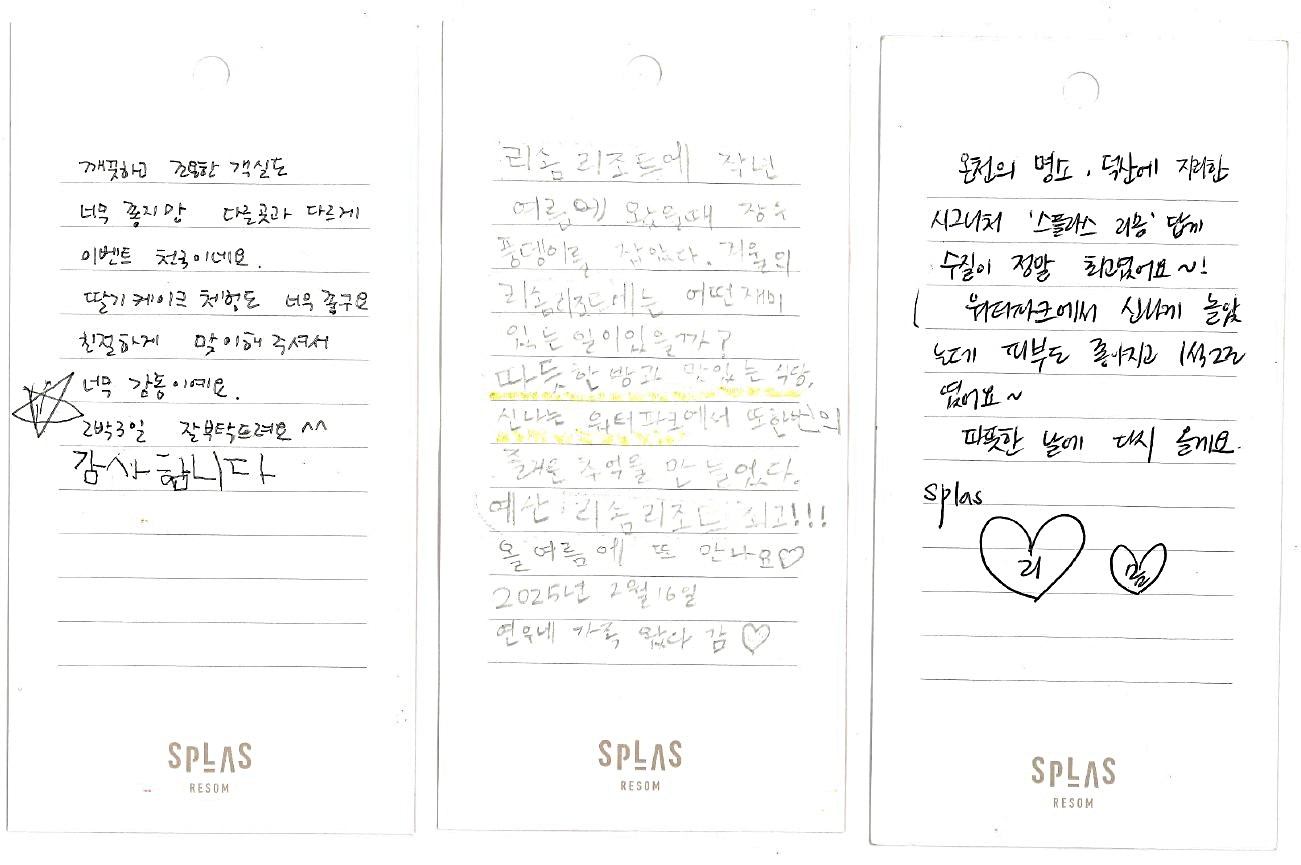 깨끗하고 조용한 객실도
너무 좋지만 다른곳과 다르게
이벤트 천국이네요.
딸기케이크 체험도 너무 좋구요
친절하게 맞이해주셔서
너무 감동이예요.
2박3일 잘부탁드려요 ^^
감사합니다
SPLAS
RESOM
리솜리조트에 작년
여름에 왔을때 장수
풍뎅이를 잡았다. 겨울의
리솜리조트에는 어떤재미
있는일이있을까?
따듯한방과 맛있는 식당,
신나는 워터파크에서 또한번의
즐거운 추억을 만들었다.
예산 리솜리조트 최고!!!
올여름에 또 만나요♡
2025년 2월16일
연우네 가족 왔다 감♡
SPLAS
RESOM
온천의 명소, 덕산에 자리한
시그니처 '스플라스 리솜' 답게
수질이 정말 최고였어요~!
워터파크에서 신나게 놀았
는데 피부도 좋아지고 1석2조
였어요~
따뜻한 날에 다시 올게요.
splas
리 솜
SPLAS
RESOM